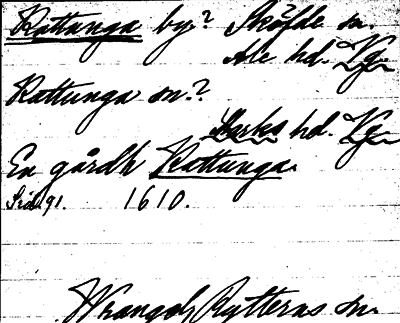 Rattunga by? Sköfde sn.
Ale hd. Vg.
Rattunga sn.?
Marks hd. Vg.
En gårdh Rattunga.
Sid. 91. 1610.
Wrangel, Rytterns sn.